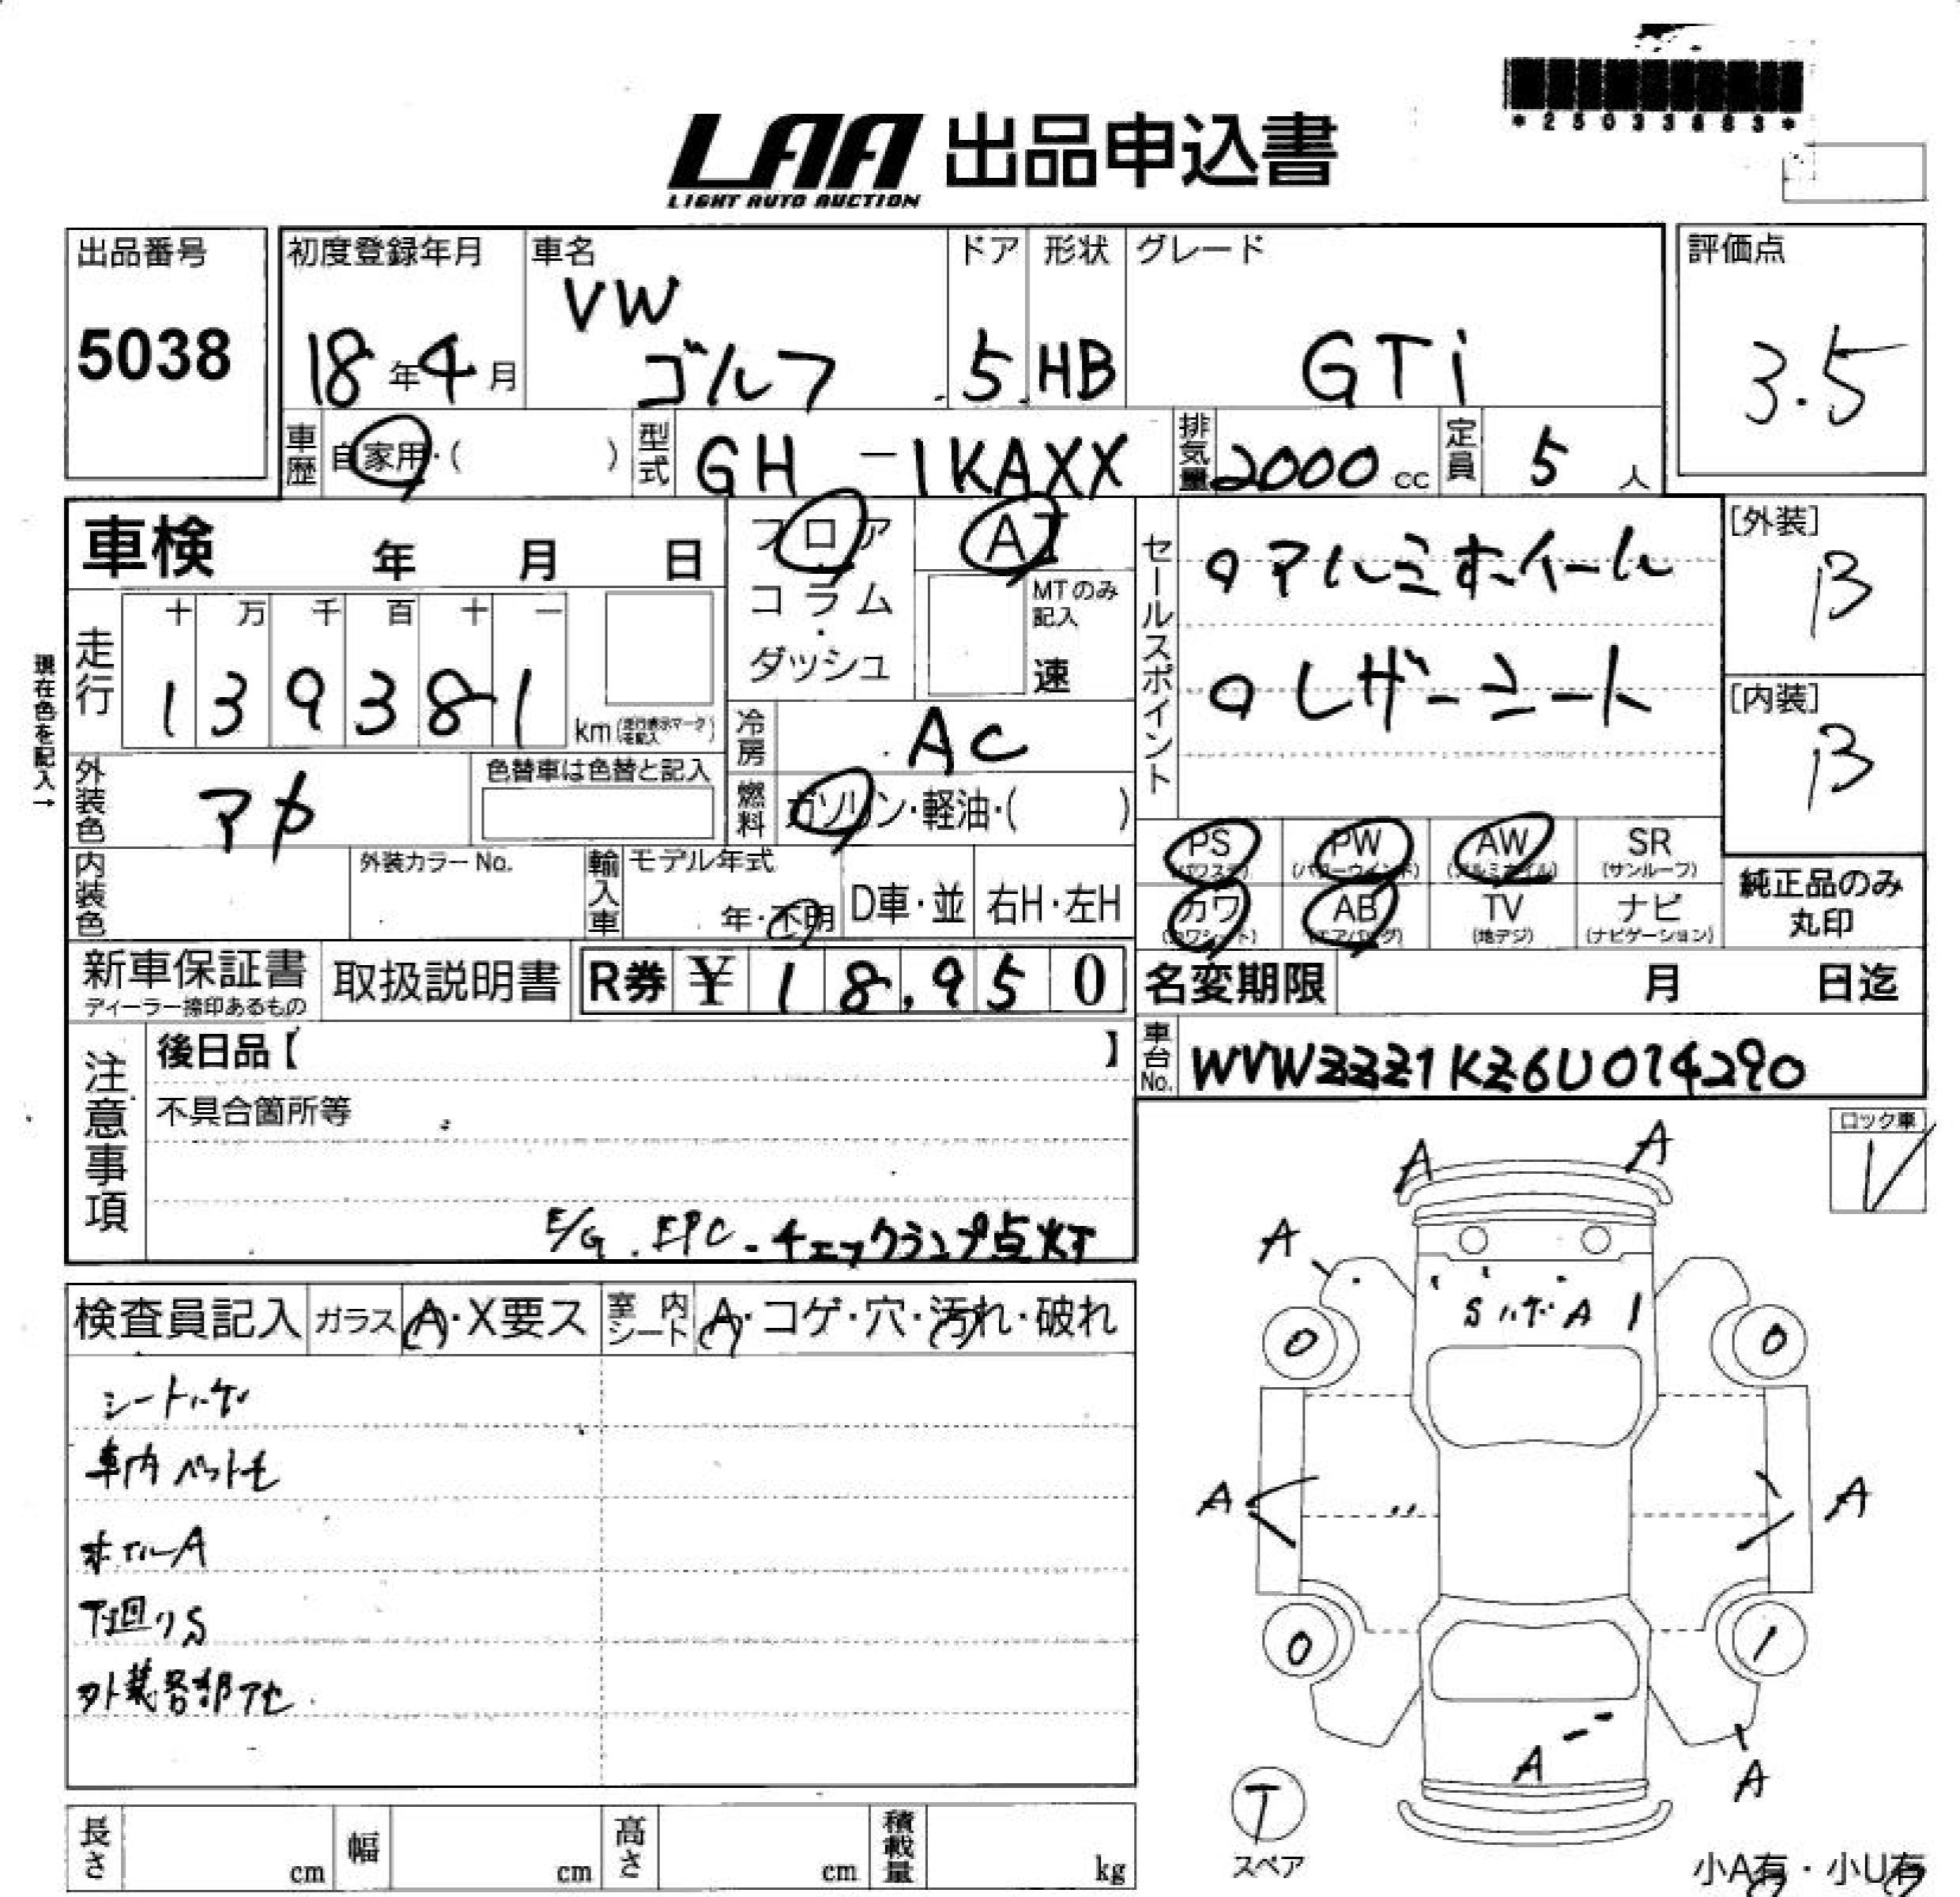 *25033883*
LAA 出品申込書
LIGHT AUTO AUCTION
出品番号
5038
初度登録年月
18年4月
車名
VW
ゴルフ
ドア
5
形状
HB
グレード
GTi
評価点
3.5
車歴
自家用・( )
型式
GH-1KAXX
排気量
2000cc
定員
5人
車検 年 月 日
フロア
コラム
・
ダッシュ
AT
MTのみ
記入
速
セールスポイント
○アルミホイール
○レザーシート
[外装]
B
[内装]
B
現在色を記入→
走行
十 万 千 百 十 一
1 3 9 3 8 1
km(走行表示マークを記入)
冷房
AC
外装色
アカ
色替車は色替と記入
燃料
ガソリン・軽油・( )
内装色
外装カラーNo.
輸入車
モデル年式
年・不明
D車・並
右H・左H
PS
(パワステ)
PW
(パワーウインド)
AW
(アルミホイル)
SR
(サンルーフ)
カワ
(カワシート)
AB
(エアバッグ)
TV
(地デジ)
ナビ
(ナビゲーション)
純正品のみ
丸印
新車保証書
ディーラー捺印あるもの
取扱説明書
R券 ¥ 18,950
名変期限 月 日迄
車台No.
WVWZZZ1KZ6U074290
注意事項
後日品【 】
不具合箇所等
E/G.EPC.チェックランプ点灯
ロック車
V
検査員記入
ガラス
A・X要ス
室内シート
A・コゲ・穴・汚れ・破れ
シートハゲ
車内ペット毛
ホイルA
下回りS
外装各部アセ
A
A
A
SハゲA1
0
0
A
A
0
1
A
A
T
スペア
小A有・小U有
長さ cm
幅 cm
高さ cm
積載量 kg